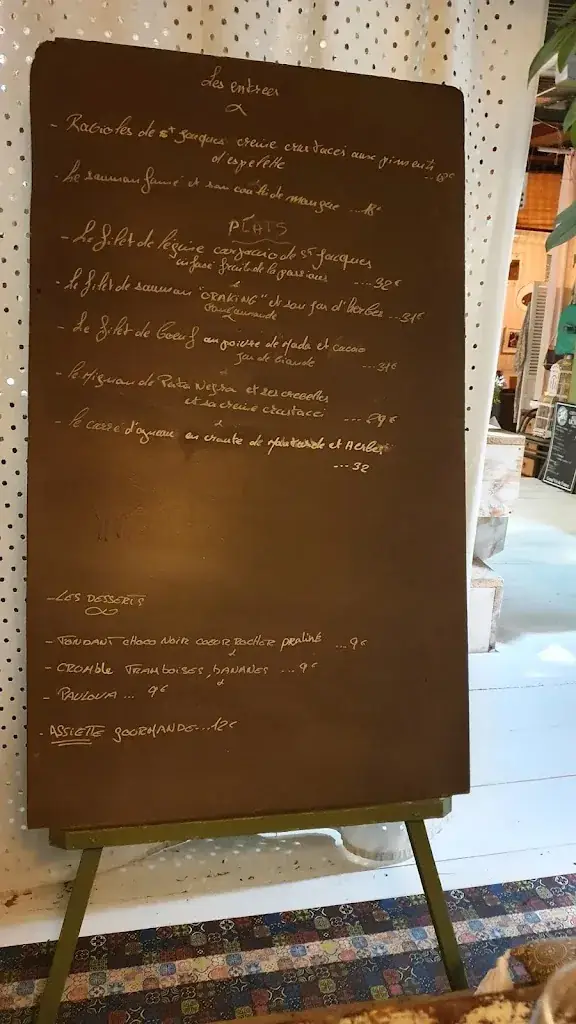 Les entrees
- Ravioles de St Jacques creme crustacei aux piments
d'espelette
- Le saumon fumé et son coulis de mangue ... 18€
PLATS
- Le filet de légine carpaccio de St Jacques
fruits de la passions ... 32€
- Le filet de saumon "ORAKING" et son jus d'herbes ... 31€
gourmande
- Le filet de boeuf au poivre de Mada et cacao
jus de viande ... 31€
- le Mignon de Pata Negra et ses
et sa creme crustacci ... 29€
- le carré d'agneau en croute de moutarde et Herbes
... 32
- LES DESSERTS
- FONDANT CHOCO NOIR COEUR ROCHER praliné ... 9€
- CROMBLE FRAMBOISES, BANANES ... 9€
- PAVLOVA ... 9€
- ASSIETTE GOURMANDE ... 12€